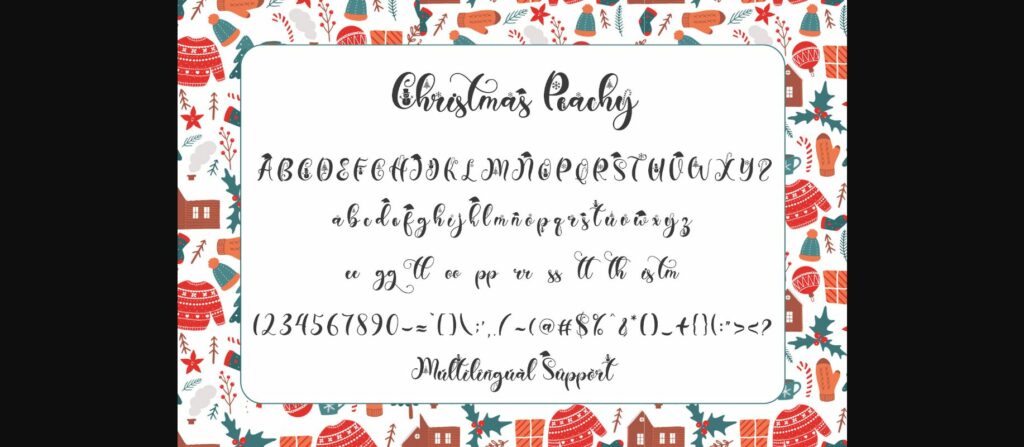 Christmas Peachy
ABCDEFGHIJKLMNOPQRSTUVWXYZ
abcdefghijklmnopqrstuvwxyz
ee gg ll oo pp rr ss tt th is tm
1234567890-=`[]\;',./~!@#$%^&*()_+{}|:"><?
Multilingual Support